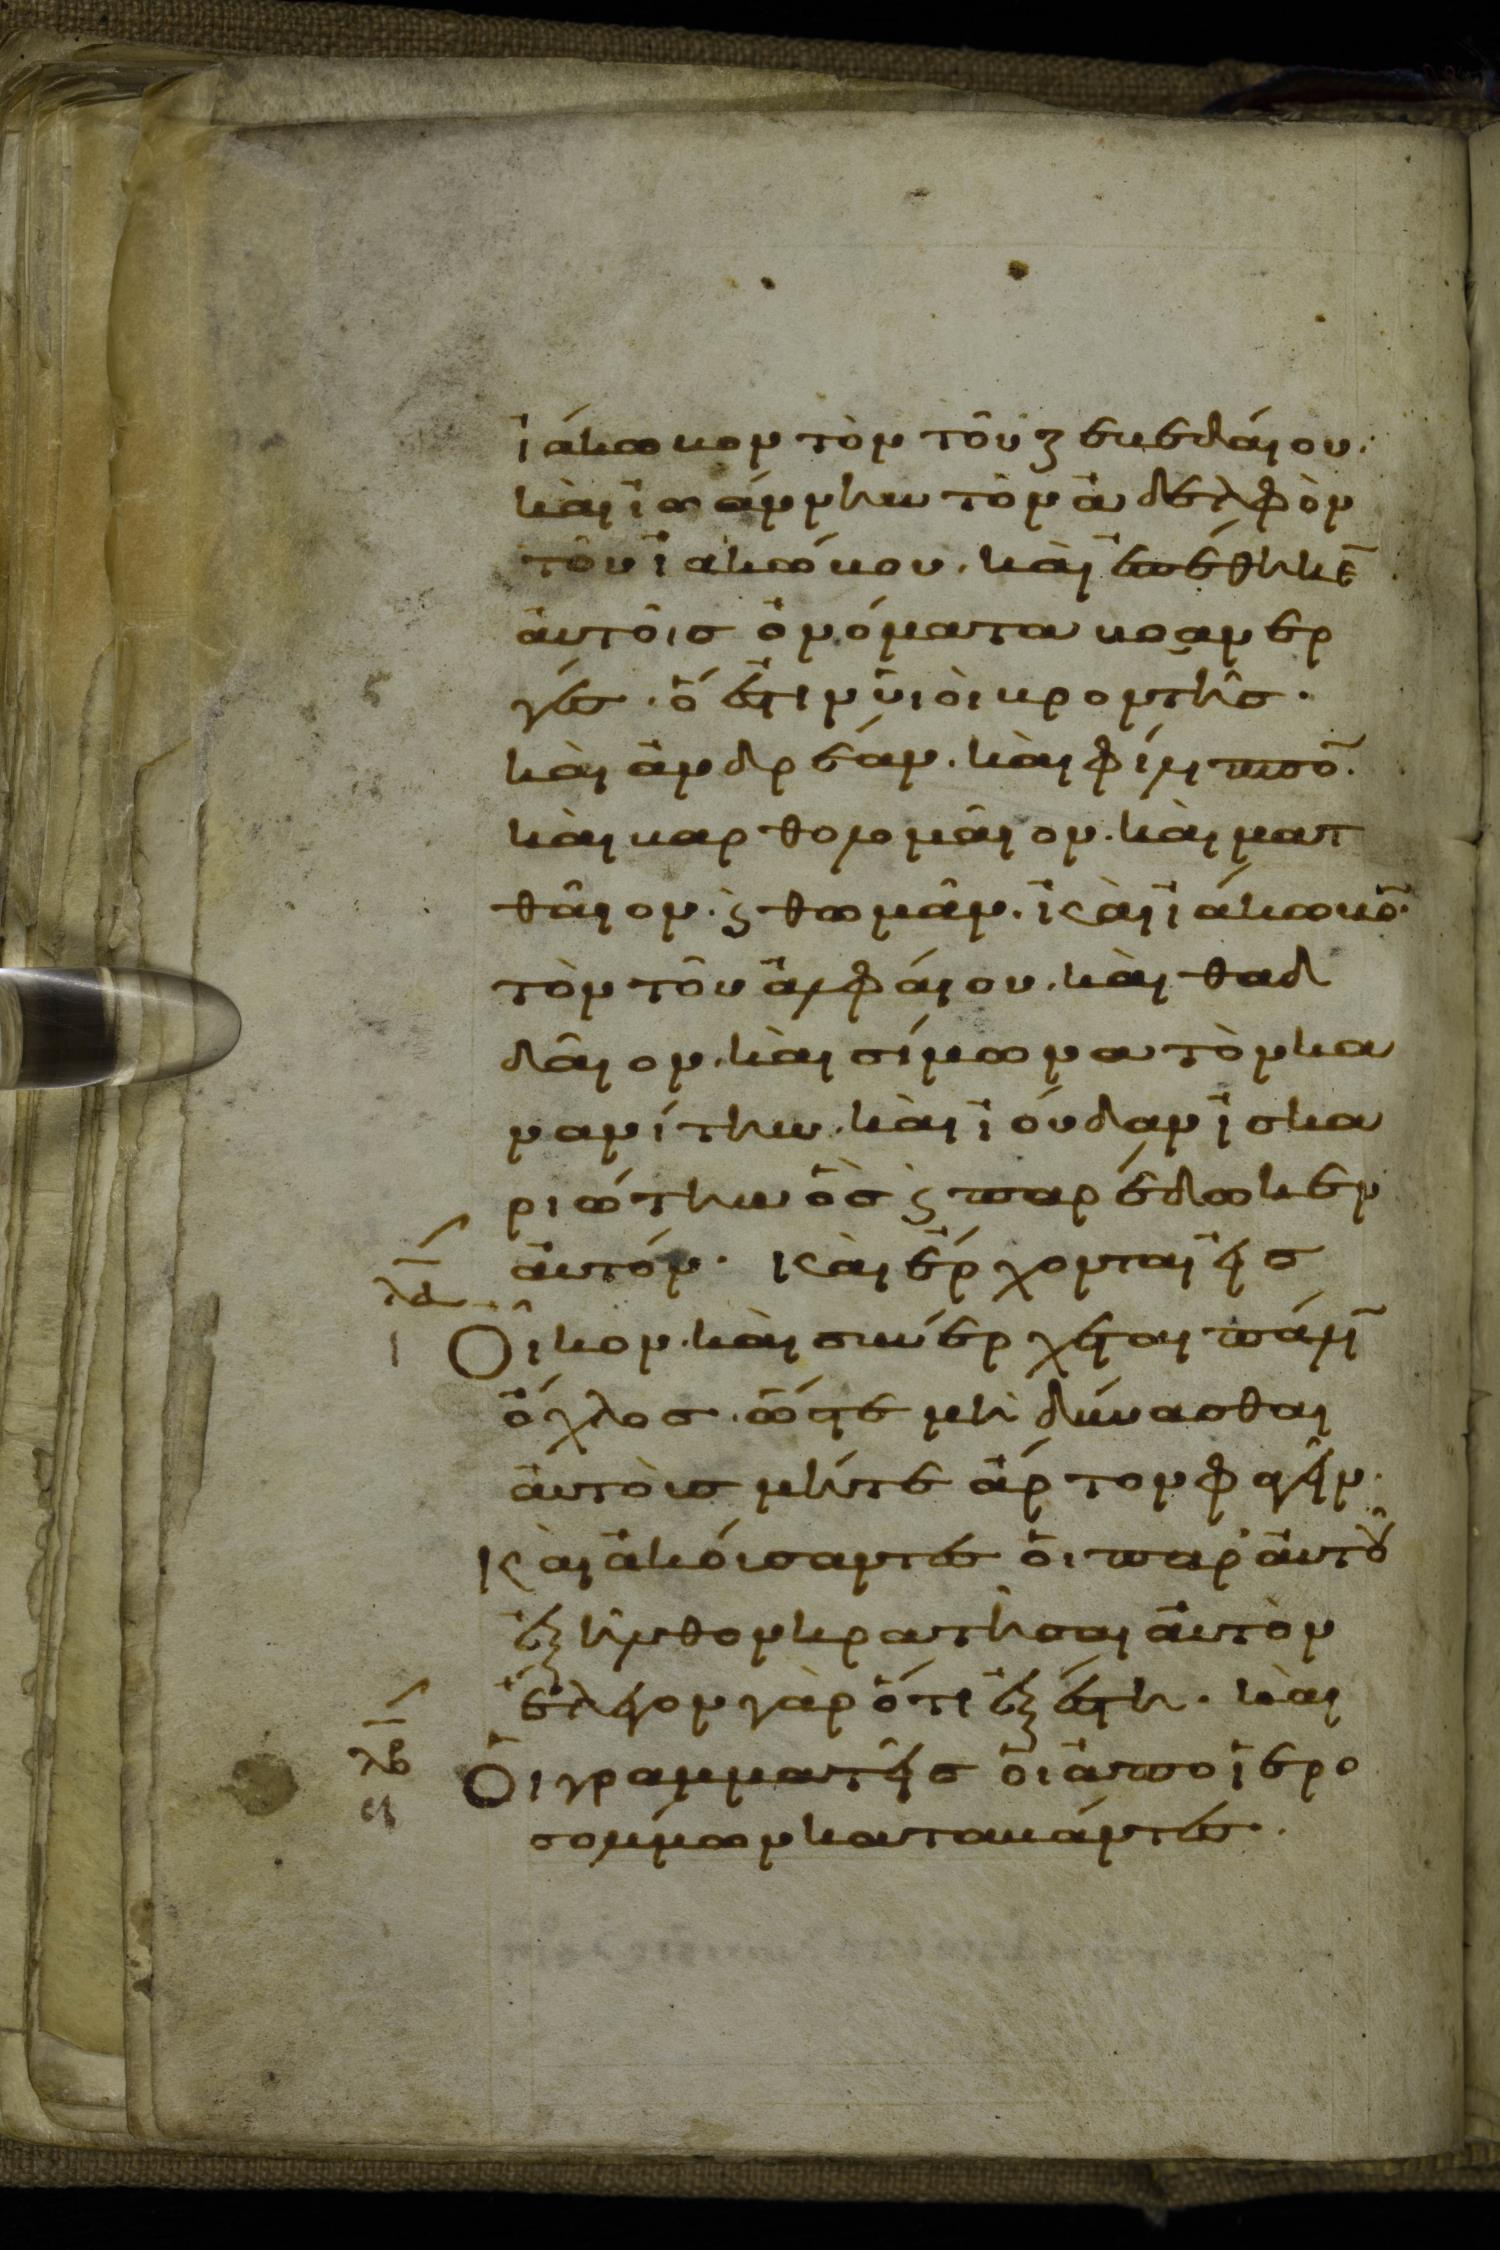 ἰάκωβον τὸν τοῦ ζεβεδάιου·
κὰι ἰωάννην τὸν ἀδελφὸν
τοῦ ἰακώβου. κὰι ἐπέθηκε̄
ἀυτοῖς ὀνόματα βοανερ
γές· ὅ ἐστιν ὑιὸι βροντῆς·
κὰι ἀνδρέαν. κὰι φίλιππο̄.
κὰι βαρθολομᾶιον. κὰι ματ
θᾶιον. ϛ θωμᾶν. κὰι ἰάκωβο̄.
τὸν τοῦ ἀλφάιου. κὰι θαδ
δᾶιον. κὰι σίμωνα τὸν κα
νανίτην. κὰι ἰούδαν ἰσκα
ριώτην ὃς ϛ παρέδωκεν
ἀυτόν· κὰι ἔρχονται ἐις
λα
ι
Οἶκον. κὰι συνέρχεται πάλῑ
ὄχλος. ὥστε μὴ δύνασθαι
ἀυτὸις μήτε ἄρτον φαγεῖν.
Κὰι ἀκόυσαντες ὁι παρ ἀυτοῦ
ἐξῆλθον κρατῆσαι ἀυτὸν
ἔλεγον γὰρ ὅτι ἐξέστη. κὰι
λβ
Ὁι γραμματεῖς ὁι ἀπο ἱερο
σολύμων καταβάντες.